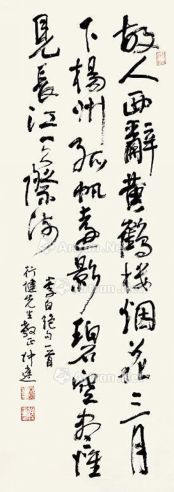 故人西辭黄鶴楼烟花三月
下揚州孤帆遠影碧空盡唯
見長江天際流
李白絕句一首
行健先生教正 仲達